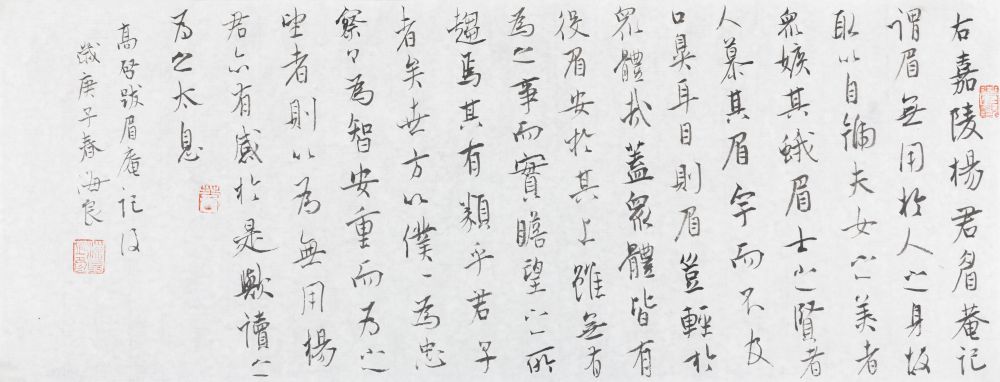 右嘉陵楊君眉菴記
謂眉無用於人之身故
取以自號夫女之美者
眾嫉其蛾眉士之賢者
人慕其眉宇而不及
口鼻耳目則眉豈輕於
眾體哉蓋眾體皆有
役眉安於其上雖無有
為之事而實瞻望之所
趨焉其有類乎君子
者矣世方以僕〻為忠
察〻為智安重而为之
望者則以為無用楊
君亦有感於是歟讀之
为之太息
高啓跋眉庵記後
歲庚子春海良